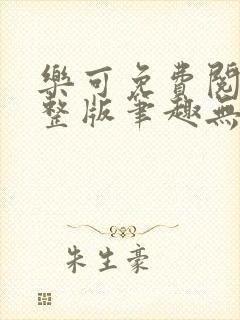 樂可免費閱
整版筆趣無
朱生豪